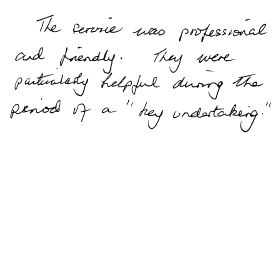 The service was professional
and friendly. They were
particularly helpful during the
period of a "key undertaking."